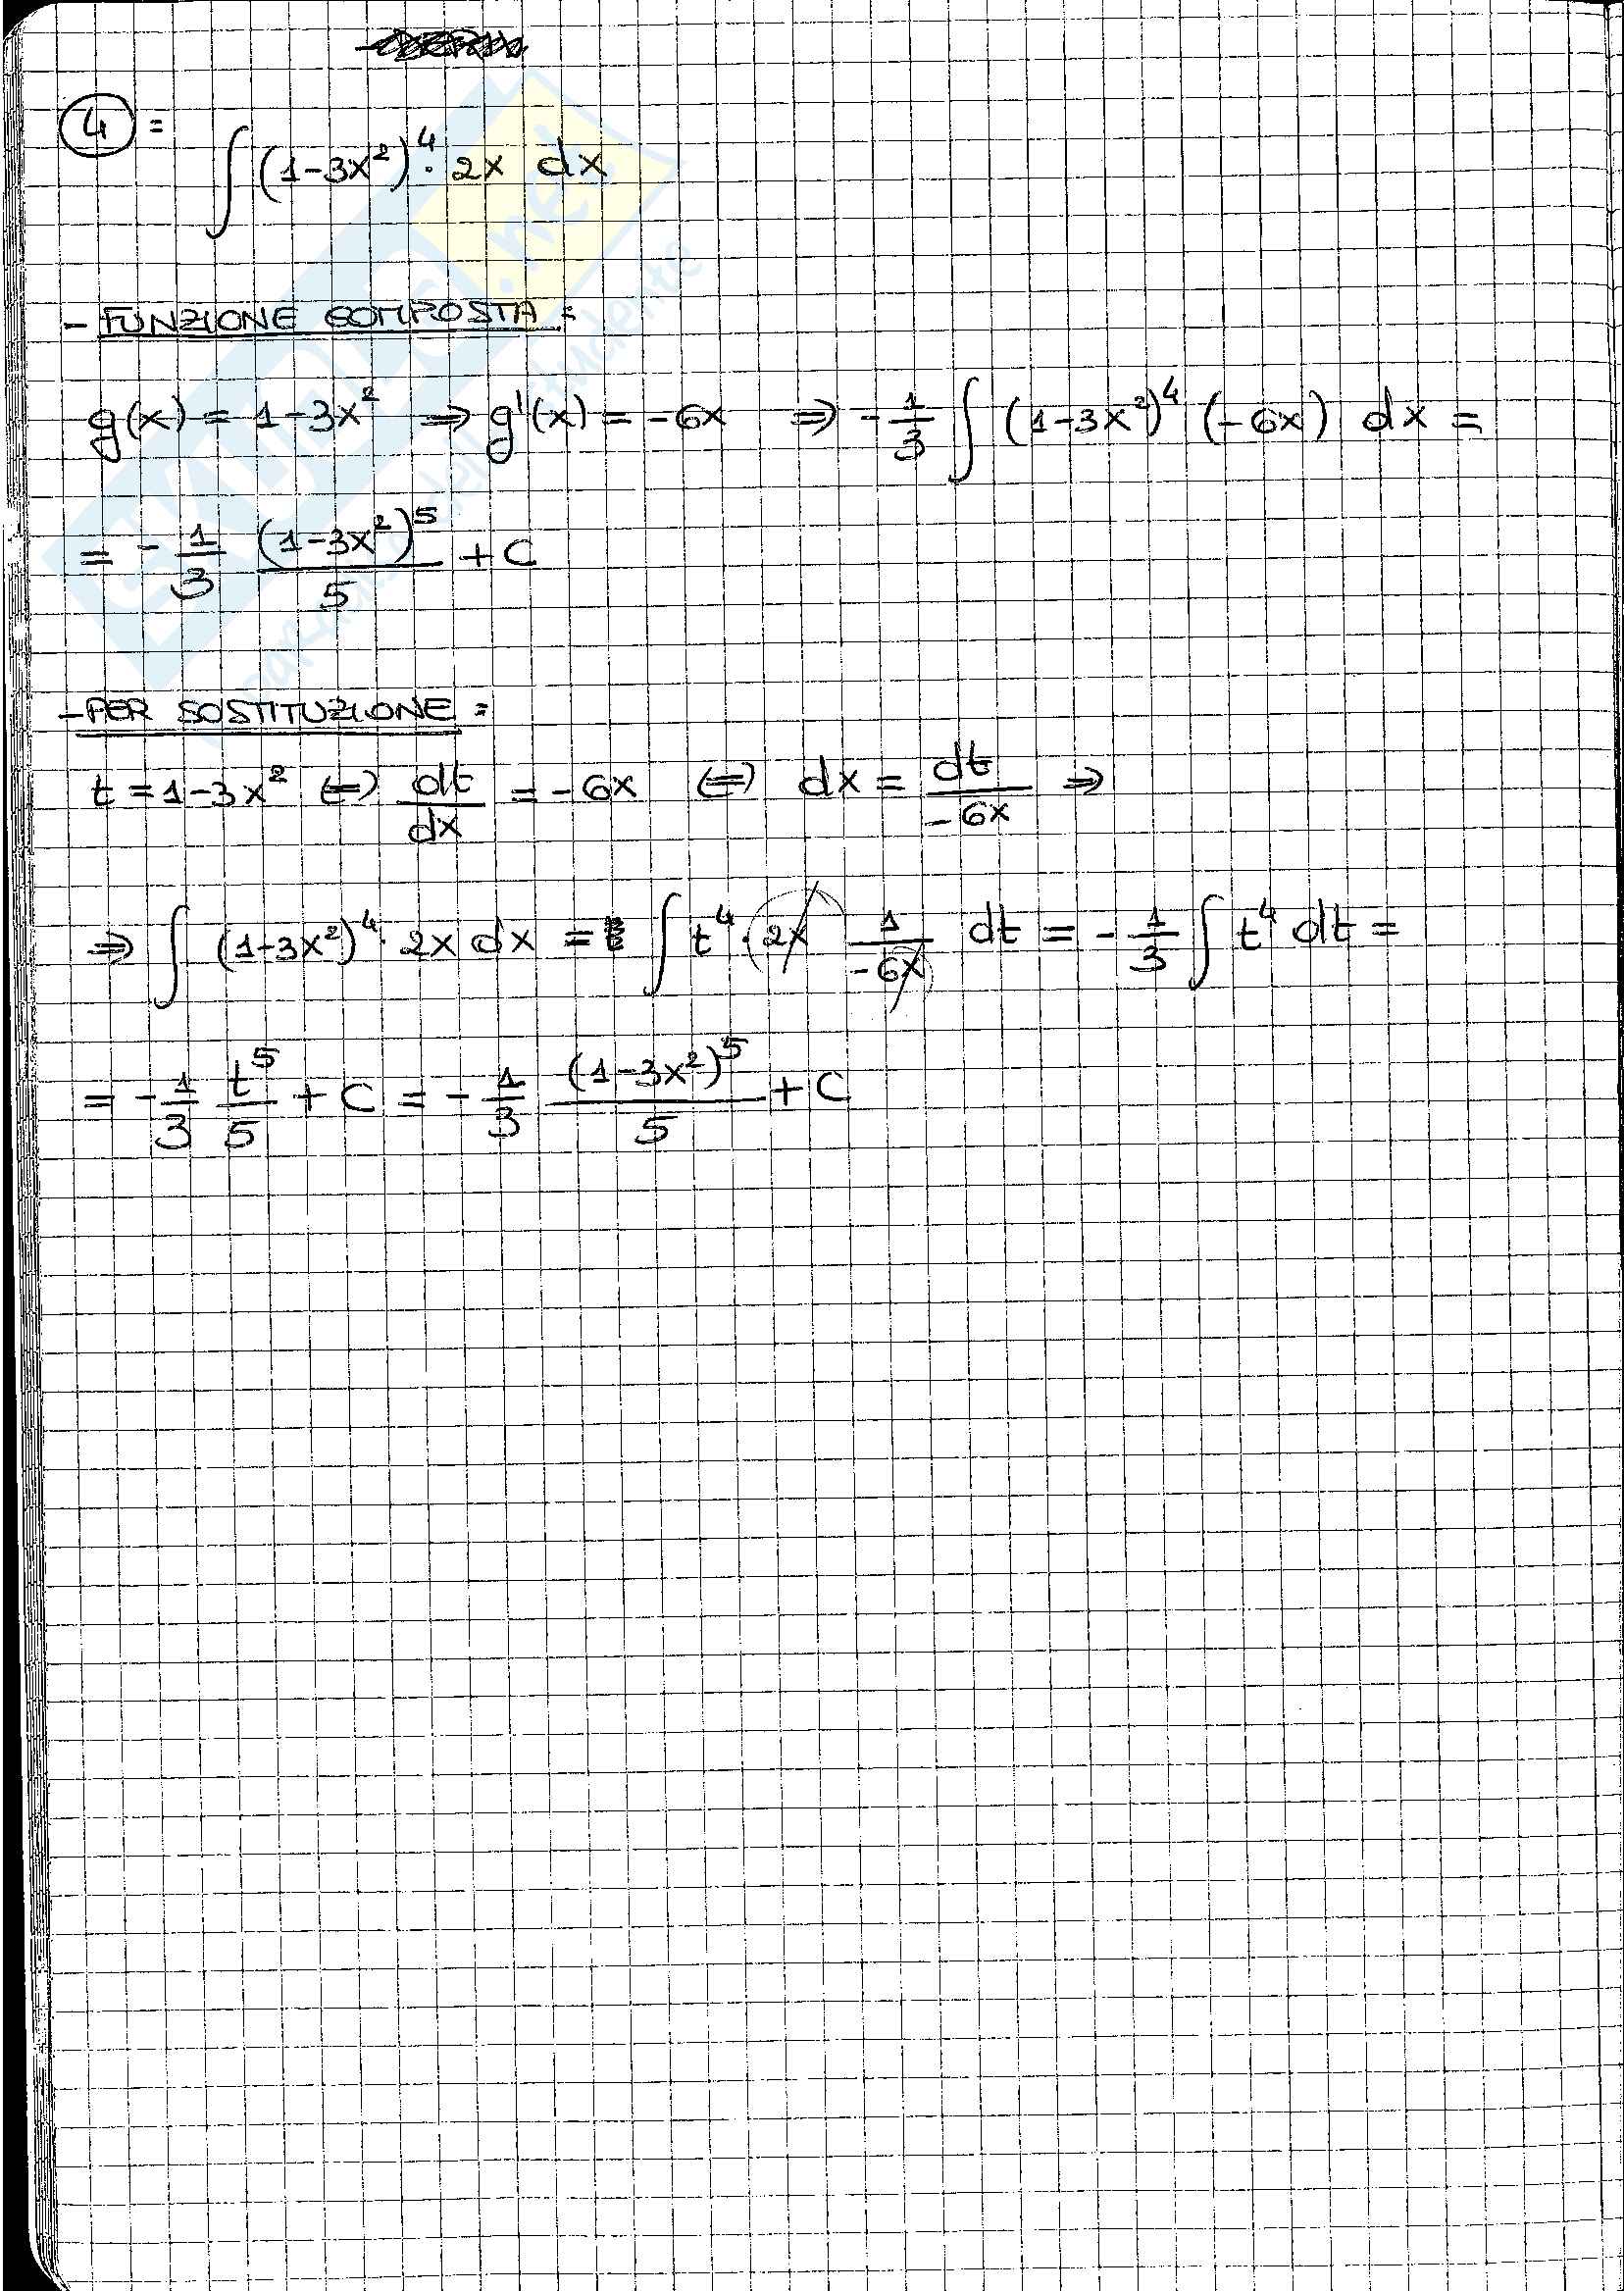 4 =
∫ (1-3x²)⁴ · 2x dx
- FUNZIONE COMPOSTA =
g(x) = 1-3x² ⇒ g'(x) = -6x ⇒ - 1/3 ∫ (1-3x²)⁴ (-6x) dx =
= - 1/3 (1-3x²)⁵/5 + C
- PER SOSTITUZIONE =
t = 1-3x² ⇔ dt/dx = -6x ⇔ dx = dt/-6x ⇒
⇒ ∫ (1-3x²)⁴ · 2x dx = ∫ t⁴ · 2x 1/-6x dt = - 1/3 ∫ t⁴ dt =
= - 1/3 t⁵/5 + C = - 1/3 (1-3x²)⁵/5 + C